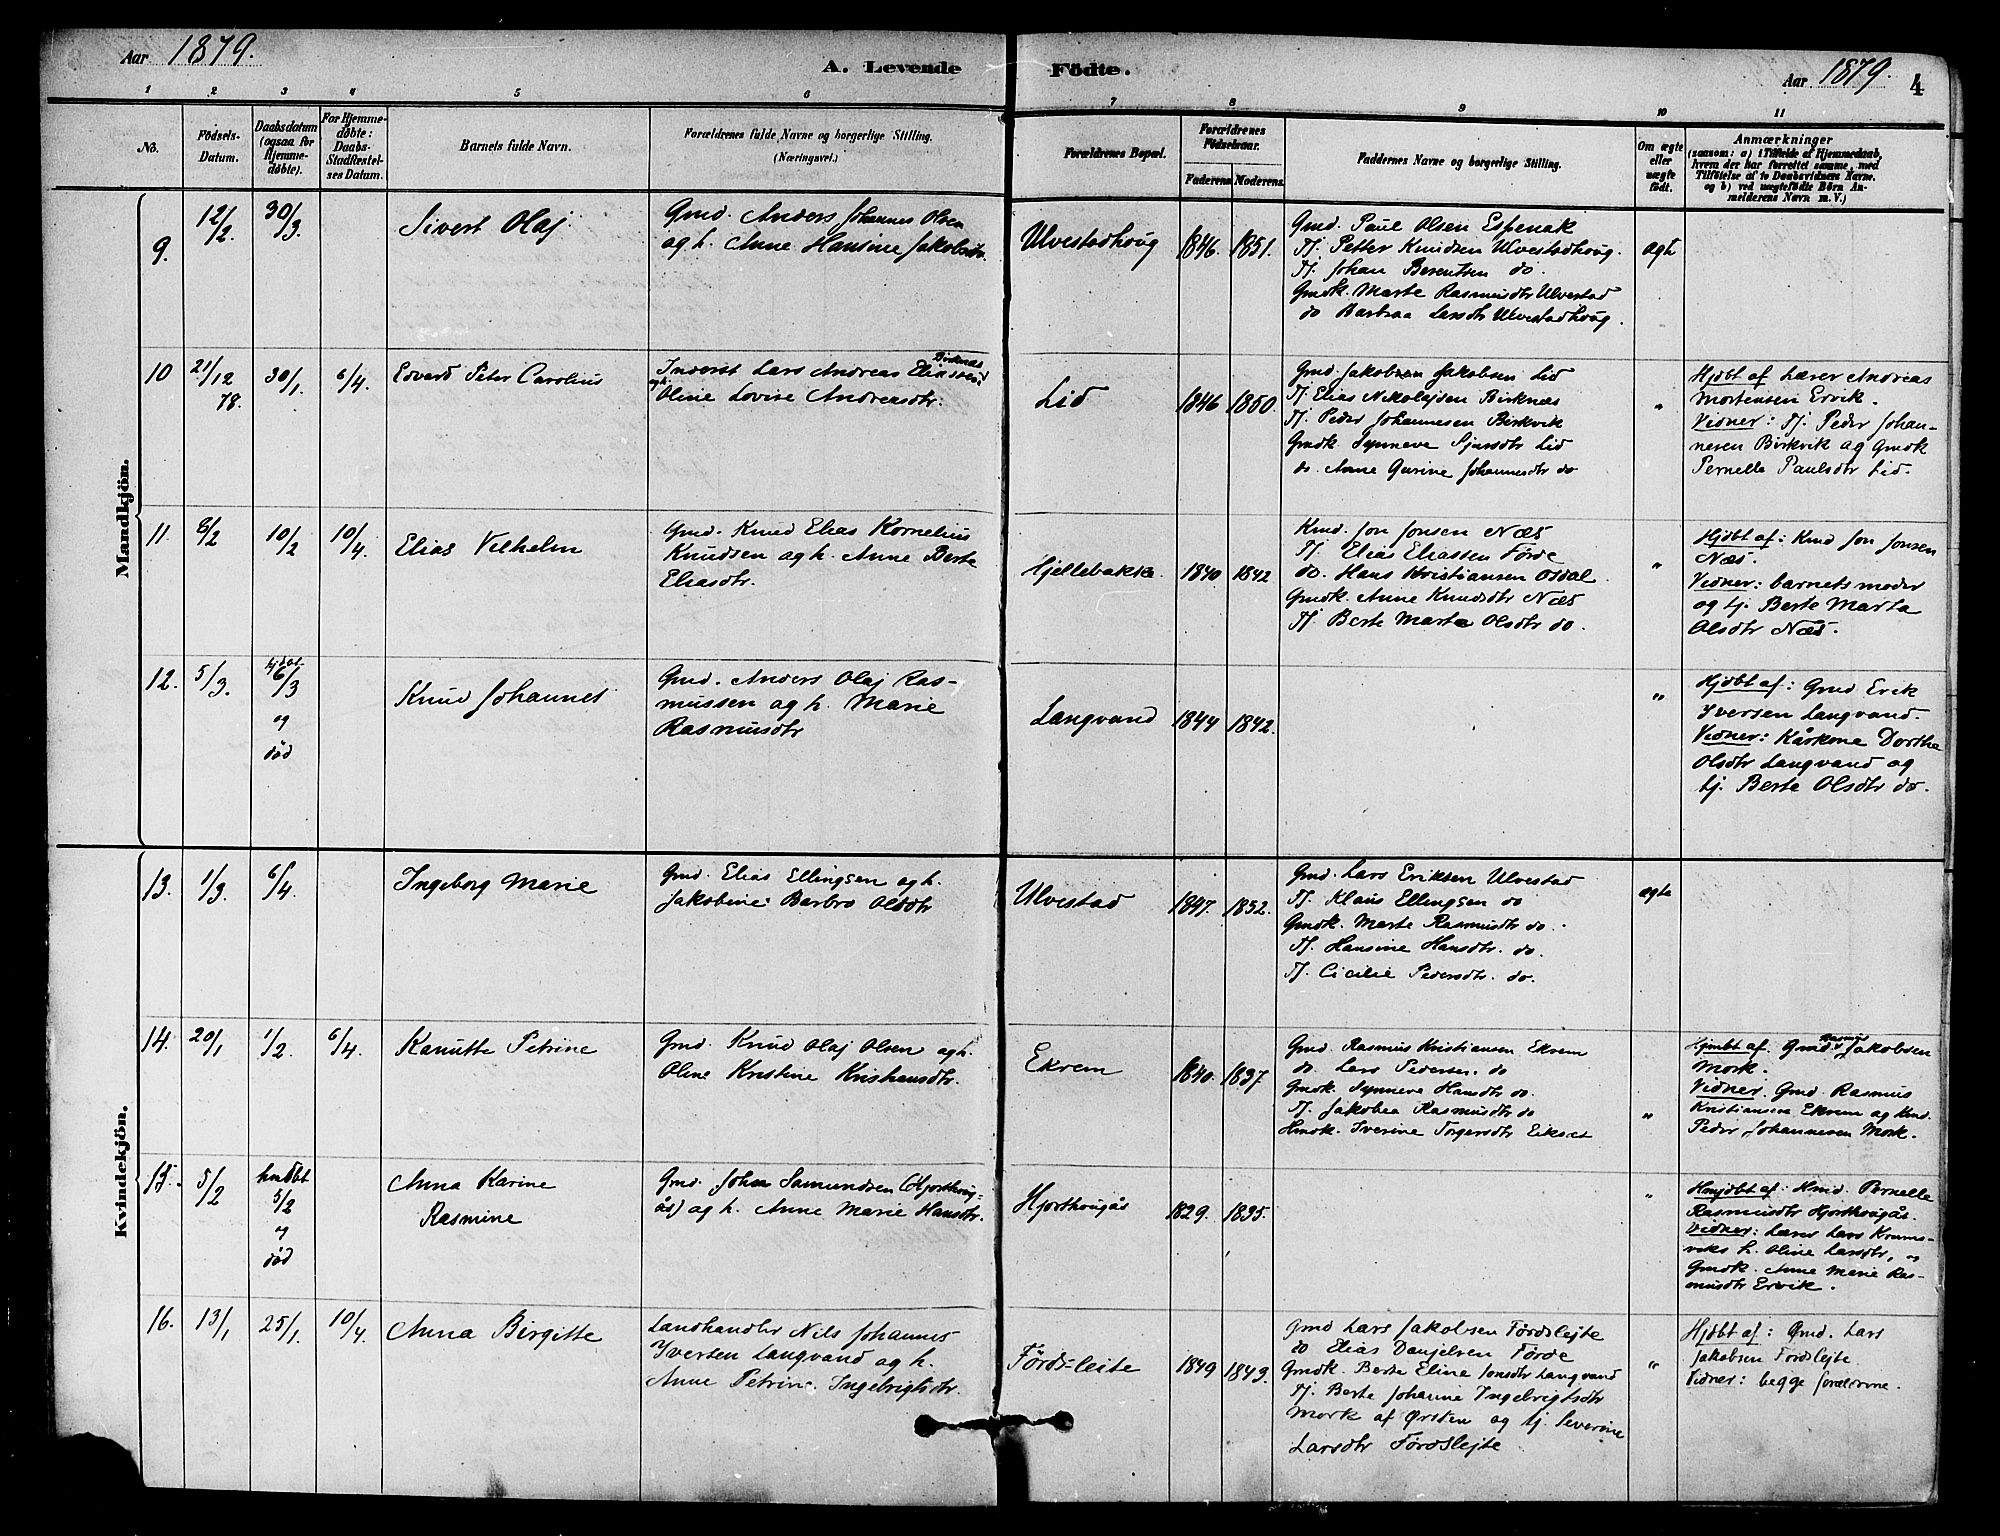 Aar 1879.
A. Levende Födte.
Aar 1879.
4
1 2 3 4 5 6 7 8 9 10 11
No.
Födsels-
Datum.
Daabsdatum
(ogsaa for
Hjemme-
døbte).
For Hjemme-
døbte:
Daabs-
Stadfæstel-
ses Datum.
Barnets fulde Navn.
Forældrenes fulde Navne og borgerlige Stilling.
(Næringsvei.)
Forældrenes Bopæl.
Forældrenes
Födselsaar.
Faderens. Moderens.
Faddernes Navne og borgerlige Stilling.
Om ægte
eller
uægte
födt.
Anmærkninger
(saasom: a) i Tilfælde af Hjemmedaab,
hvem der har forrettet samme, med
Tilföielse af to Daabsvidners Navne.
og b) ved uægtefödte Börn An-
melderens Navn m. V.)
Mandkjön.
9.
12/2.
30/3.
Sivert Olaj
Gmd. Anders Johannes Olsen
og h. Anne Hansine Jakobsdtr.
Ulvestadhoug
1846. 1851.
Gmd. Paul Olsen Espenak
Tj. Petter Knudsen Ulvestadhoug.
Tj. Johan Berentsen do.
Gmdk. Marte Rasmusdtr Ulvestad
do Barbraa Larsdtr Ulvestadhoug.
ægte
10
21/12
78.
30/1.
6/4.
Edvard Peter Carolius
Inderst Lars Andreas Eliassen Birknæs
og h. Oline Lovise Andreasdtr.
Lid
1846 1850.
Gmd Jakobsen Jakobsen Lid
Tj. Elias Nikolajsen Birknæs
Tj. Peder Johannesen Birkvik
Gmdk. Synneve Sjursdtr Lid
do. Anne Gurine Johannesdtr do
"
Hjdbt af Lærer Andreas
Mortensen Ervik.
Vidner: Tj. Peder Johan-
nesen Birkvik og Gmdk
Pernelle Paulsdtr Lid.
11.
8/2
10/2
10/4.
Elias Vilhelm
Gmd. Knud Elias Kornelius
Knudsen og h. Anne Berte
Eliasdtr.
Hjellebakke
1840 1842
Kmd. Jon Jonsen Næs
Tj. Elias Eliassen Förde
do. Hans Kristiansen Osdal.
Gmdk. Anne Knudsdtr Næs
Tj. Berte Marte Olsdtr do.
"
Hjdbt af: Kmd Jon Jonsen
Næs.
Vidner: barnets moder
og tj. Berte Marta
Olsdtr Næs.
12.
5/3.
6/3
og
död
Knud Johannes
Gmd. Anders Olaj Ras-
mussen og h. Marie
Rasmusdtr
Langvand
1844 1842.
"
Hjdbt af: Gmd Erik
Iversen Langvand.
Vidner: Kårkone Dorthe
Olsdtr Langvand og
tj. Berte Olsdtr do.
Kvindekjön.
13.
1/3.
6/4.
Ingeborg Marie
Gmd. Elias Ellingsen og h.
Jakobine Barbro Olsdtr
Ulvestad
1847. 1852.
Gmd. Lars Eriksen Ulvestad
Tj. Klaus Ellingsen do
Gmdk. Marte Rasmusdtr do.
Tj. Hansine Hansdtr. do.
Tj. Cicilie Pedersdtr. do.
ægte
14.
20/1
1/2.
6/4.
Kanutte Petrine
Gmd. Knud Olaj Olsen og h.
Oline Kristine Kristiansdtr.
Ekrem
1840. 1837.
Gmd. Rasmus Kristiansen Ekrem
do. Lars Pedersen. do
Gmdk. Synneve Hansdtr do.
Tj. Jakobea Rasmusdtr do
Hmdk. Iverine Torgersdtr Eikset
"
Hjmbt af. Gmd Rasmus Jakobsen
Mork.
Vidner. Gmd. Rasmus
Kristiansen Ekrem og Kmd.
Peder Johannesen Mork.
15.
5/2
hmdbt
5/2
og
död
Anna Karine
Rasmine
Gmd. Johan Samundsen (Hjorthoug-
ås) og h. Anne Marie Hansdtr.
Hjorthougås
1829. 1835.
"
Hmjdbt af: Hmd Pernelle
Rasmusdtr Hjorthougås.
Vidner: Lærer Lars Krums-
viks h. Oline Larsdtr, og
Gmdk. Anne Marie Ras-
musdtr Ervik.
16.
13/1.
25/1.
10/4.
Anna Birgitte
Landhandler Nils Johannes
Iversen Langvand og h.
Anne Petrine Ingebrigtsdtr.
Førds-leite
1849 1849.
Gmd Lars Jakobsen Førdslejte
do Elias Danjelsen Førde
Gmdk. Berte Eline Jonsdtr Langvand
Tj. Berte Johanne Ingebrigtsdtr
Mork af Ørsten og tj. Severine
Larsdtr Førdslejte
"
Hjdbt af: Gmd. Lars
Jakobsen Førdslejte
Vidner: begge forældrene.